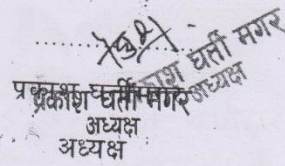 प्रकाश घर्ती मगर
अध्यक्ष
प्रकाश घर्ती मगर
अध्यक्ष
प्रकाश घर्ती मगर
अध्यक्ष